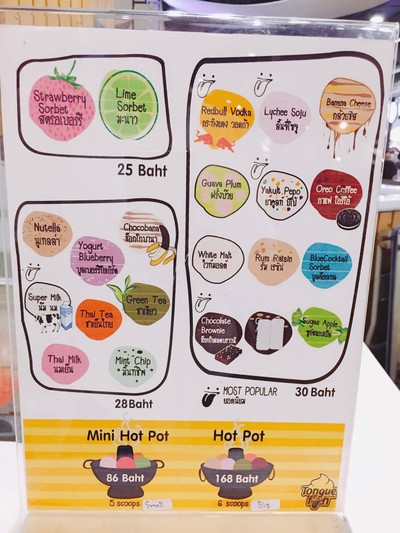 Strawberry
Sorbet
สตรอเบอร์รี่
Lime
Sorbet
มะนาว
25 Baht
Nutella
นูเทลลา
Yogurt
Blueberry
Chocobana
ช็อกโกบานา
Super Milk
นม นม
Thai Tea
ชาเย็นไทย
Green Tea
ชาเขียว
Thai Milk
นมเย็น
Mint Chip
มิ้นท์ชิพ
28Baht
Redbull Vodka
กระทิงแดง วอดก้า
Lychee Soju
ลิ้นจี่โซจู
Banana Cheese
กล้วยชีส
Guava Plum
ฝรั่งบ๊วย
Yakult Pepo
ยาคูลท์ ปีโป้
Oreo Coffee
กาแฟ โอรีโอ้
White Malt
ไวท์มอลต์
Rum Raisin
รัม เรซิ่น
BlueCocktail
Sorbet
บลูค็อกเทล
Chocolate
Brownie
ช็อกโกแลตบราวนี่
Sugus Apple
MOST POPULAR
ยอดนิยม
30 Baht
Mini Hot Pot
86 Baht
5 scoops
Small
Hot Pot
168 Baht
6 scoops
Big
Tongue